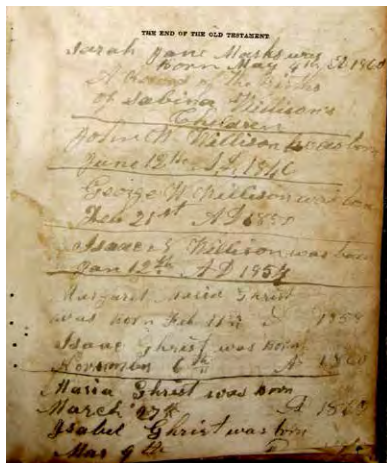 THE END OF THE OLD TESTAMENT
Sarah Jane Marks was
born May 4th AD 1860
A Record of the Births
of Sabina Willison's
Children
John W Willison was born
June 12th AD 1846
George W Willison was born
Feb 21st AD 1850
Isaac S Willison was born
Jan 12th AD 1854
Margaret Maria Ghrist
was born Feb 11th 1858
Isaac Ghrist was born
November 6th A 1860
Maria Ghrist was born
March 27th A
Isabel Ghrist was born
Mar 9th